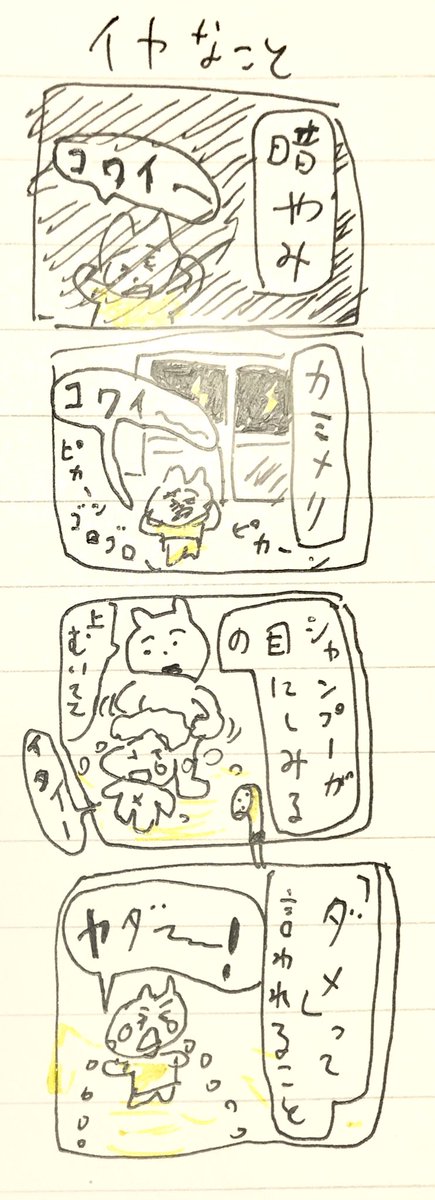 イヤなこと
暗やみ
コワイー
カミナリ
コワイー
ピカーン
ゴロゴロ
ピカーン
シャンプーが
目にしみる
の
上むいてて
イタイー
「ダメ」って
言われること
ヤダー!